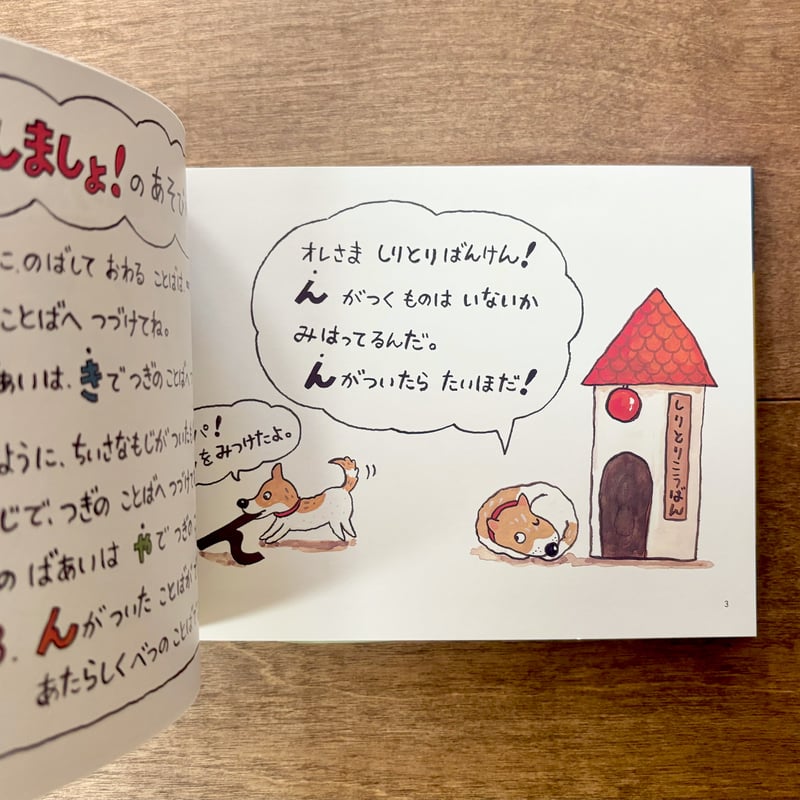 しましょ！のあそび
に、のばして おわる ことばは、
ことばへ つづけてね。
あいは、きで つぎの ことばへ
ように、ちいさなもじが ついた
じで、つぎの ことばへ つづけ
の ばあいは やで つぎ
3. んが ついた ことばが
あたらしく べつの ことば
オレさま しりとりばんけん！
ん がつくものは いないか
みはってるんだ。
ん がついたら たいほだ！
パ！
をみつけたよ。
て
しりとりこうばん
3